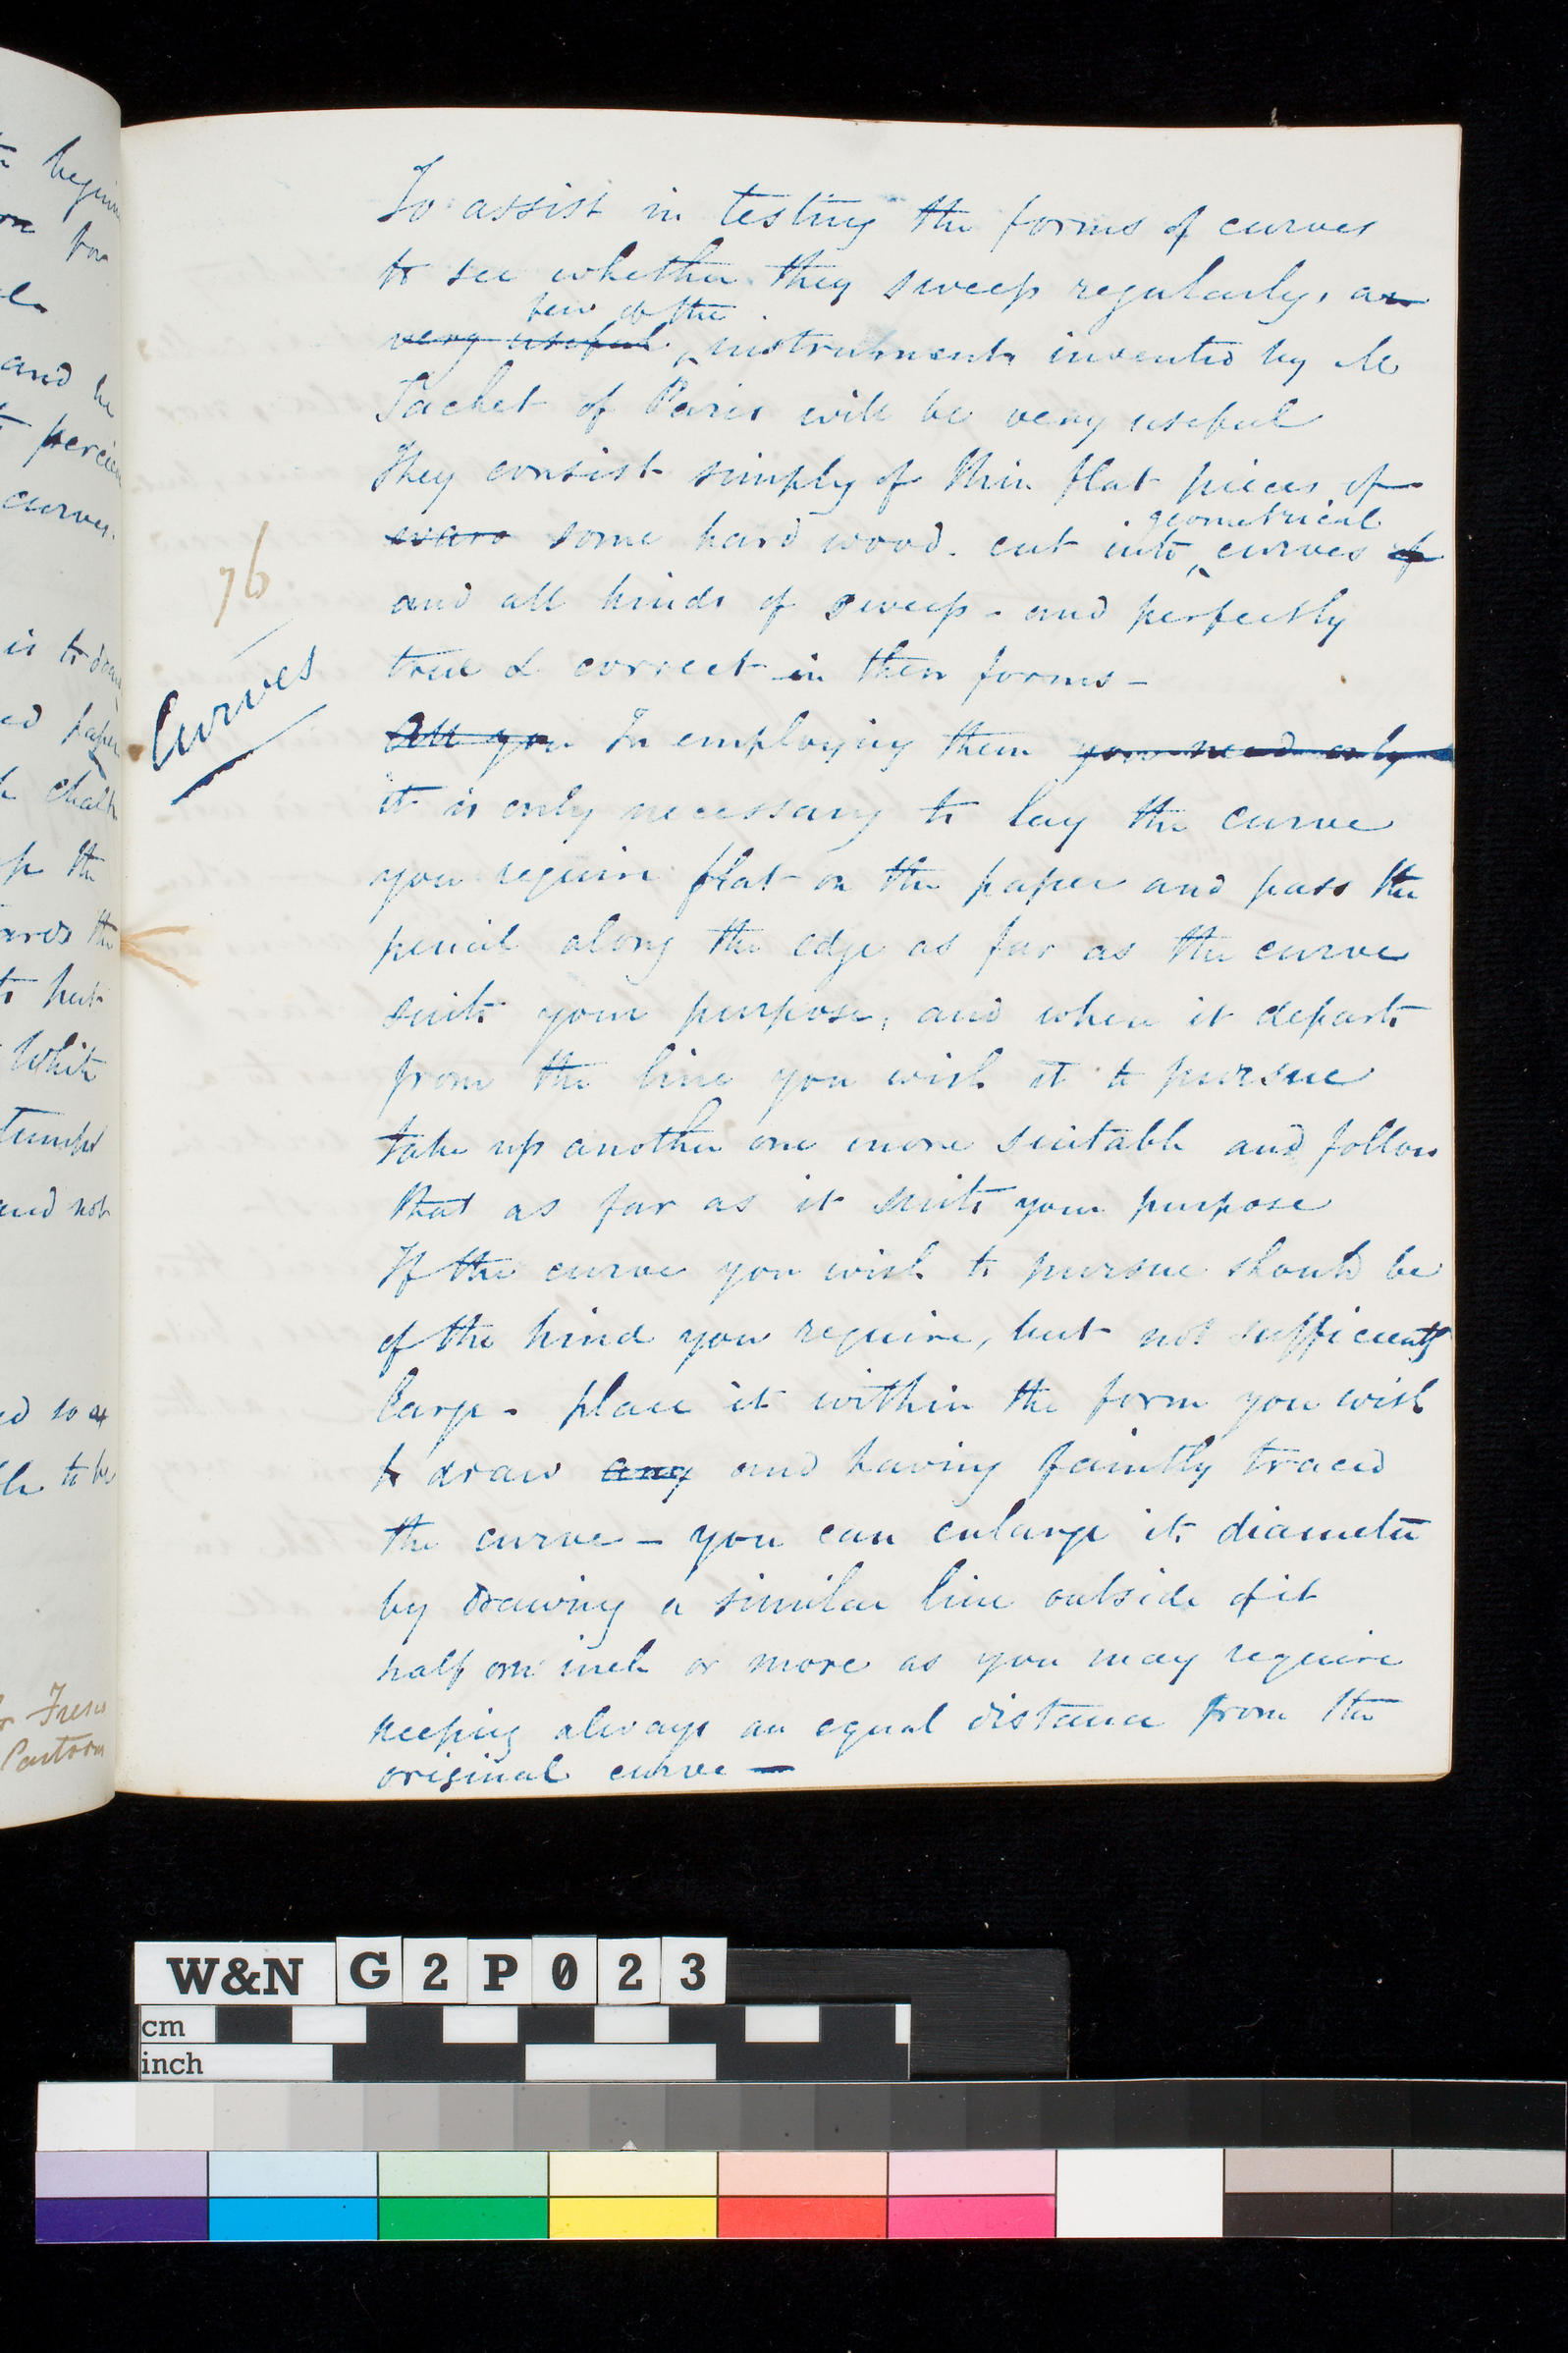 te begin
for
and he
t percie
curves.
is to draw
ed paper
chalk
p the
ards the
to hut
White
tumbl
and not
ed so as
ble to be
for Fresco
Cartoon
76
Curves
To assist in testing the forms of curves
to see whether they sweep regularly, an
few of the
very useful instruments invented by M
Tachet of Paris will be very useful
They consist simply of thin flat pieces of
geometrical
some hard wood. cut into curves of
and all kinds of sweep - and perfectly
true & correct in their forms -
All you In employing them you need only
it is only necessary to lay the curve
you require flat on the paper and pass the
pencil along the edge as far as the curve
suits your purpose, and when it departs
from the line you wish it to pursue
take up another one more suitable and follow
that as far as it suits your purpose
If the curve you wish to pursue should be
of the kind you require, but not sufficiently
large - place it within the form you wish
to draw any and having faintly traced
the curve - you can enlarge its diameter
by drawing a similar line outside of it
half an inch or more as you may require
keeping always an equal distance from the
original curve -
W&N G2P023
cm
inch